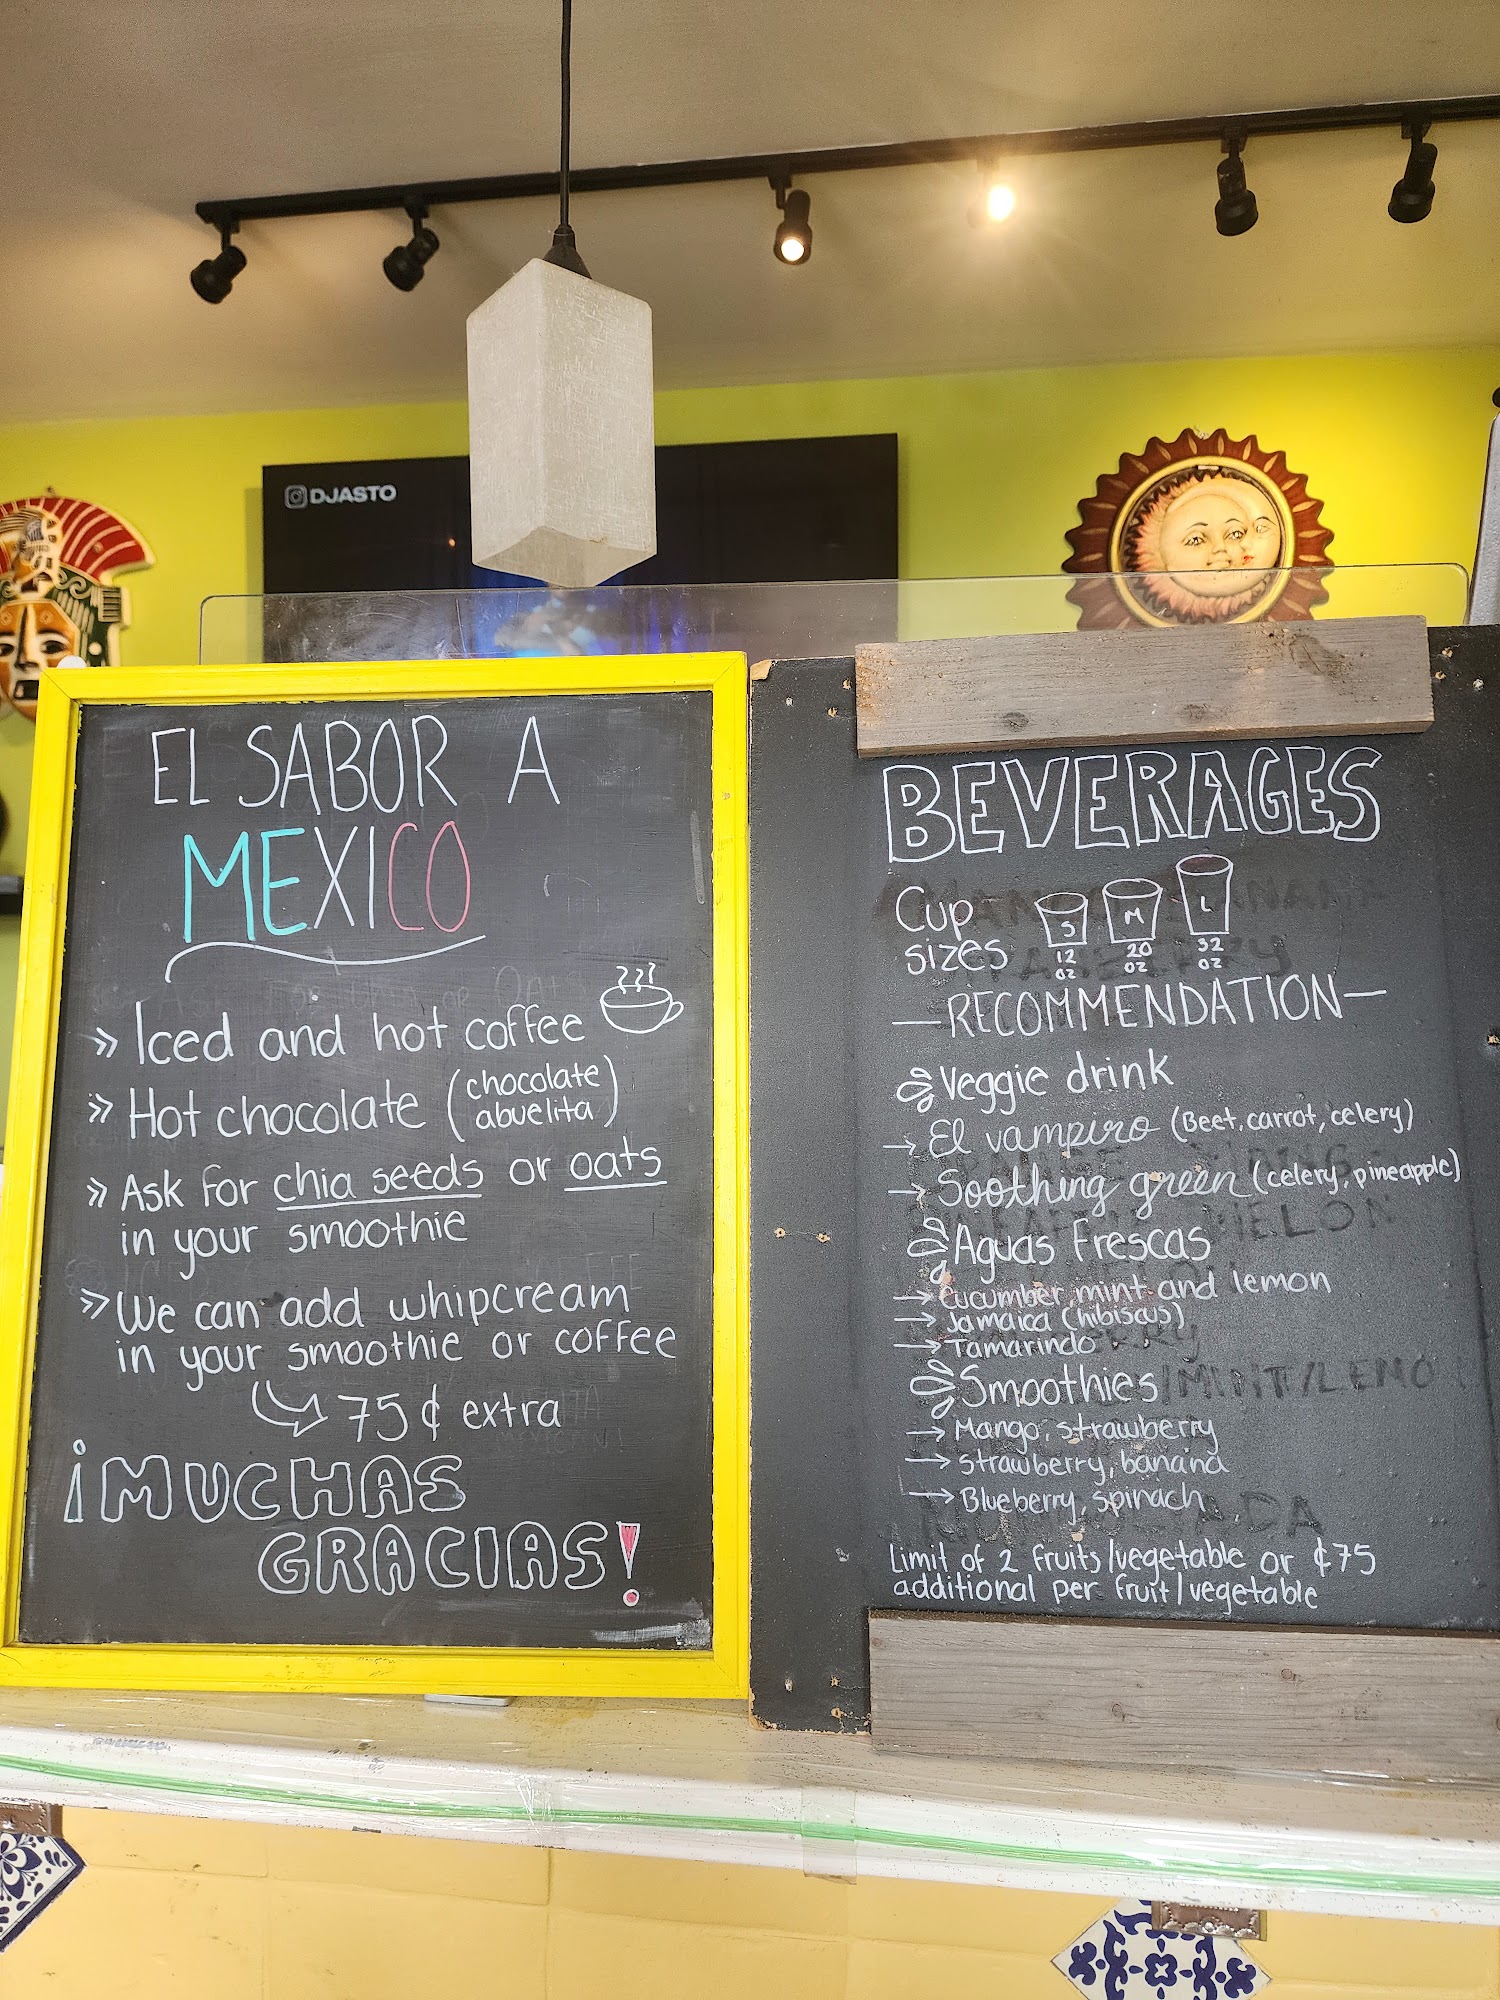 DJASTO
EL SABOR A
MEXICO
» Iced and hot coffee
» Hot chocolate (chocolate
abuelita)
» Ask for chia seeds or oats
in your smoothie
» We can add whipcream
in your smoothie or coffee
75¢ extra
¡MUCHAS
GRACIAS!
BEVERAGES
Cup
sizes
S M L
12 20 32
oz oz oz
—RECOMMENDATION—
Veggie drink
→ El vampiro (Beet, carrot, celery)
→ Soothing green (celery, pineapple)
Aguas Frescas
→ Cucumber, mint and lemon
→ Jamaica (hibiscus)
→ Tamarindo
Smoothies
→ Mango, strawberry
→ Strawberry, banana
→ Blueberry, spinach
Limit of 2 fruits/vegetable or ¢75
additional per fruit/vegetable
MELON
MINT/LEMO